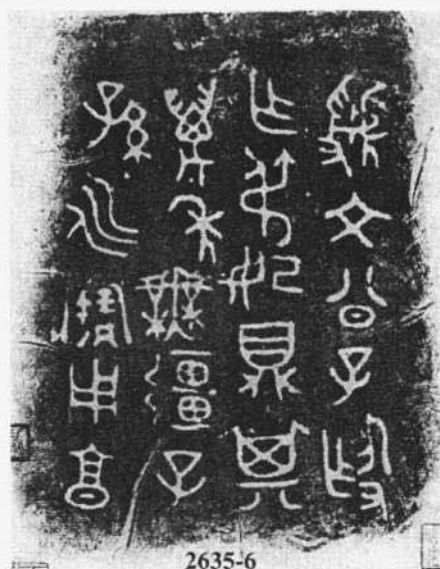 虢文公子
乍叔妃鼎其
萬年無疆子
孫永寶用享
2635-6